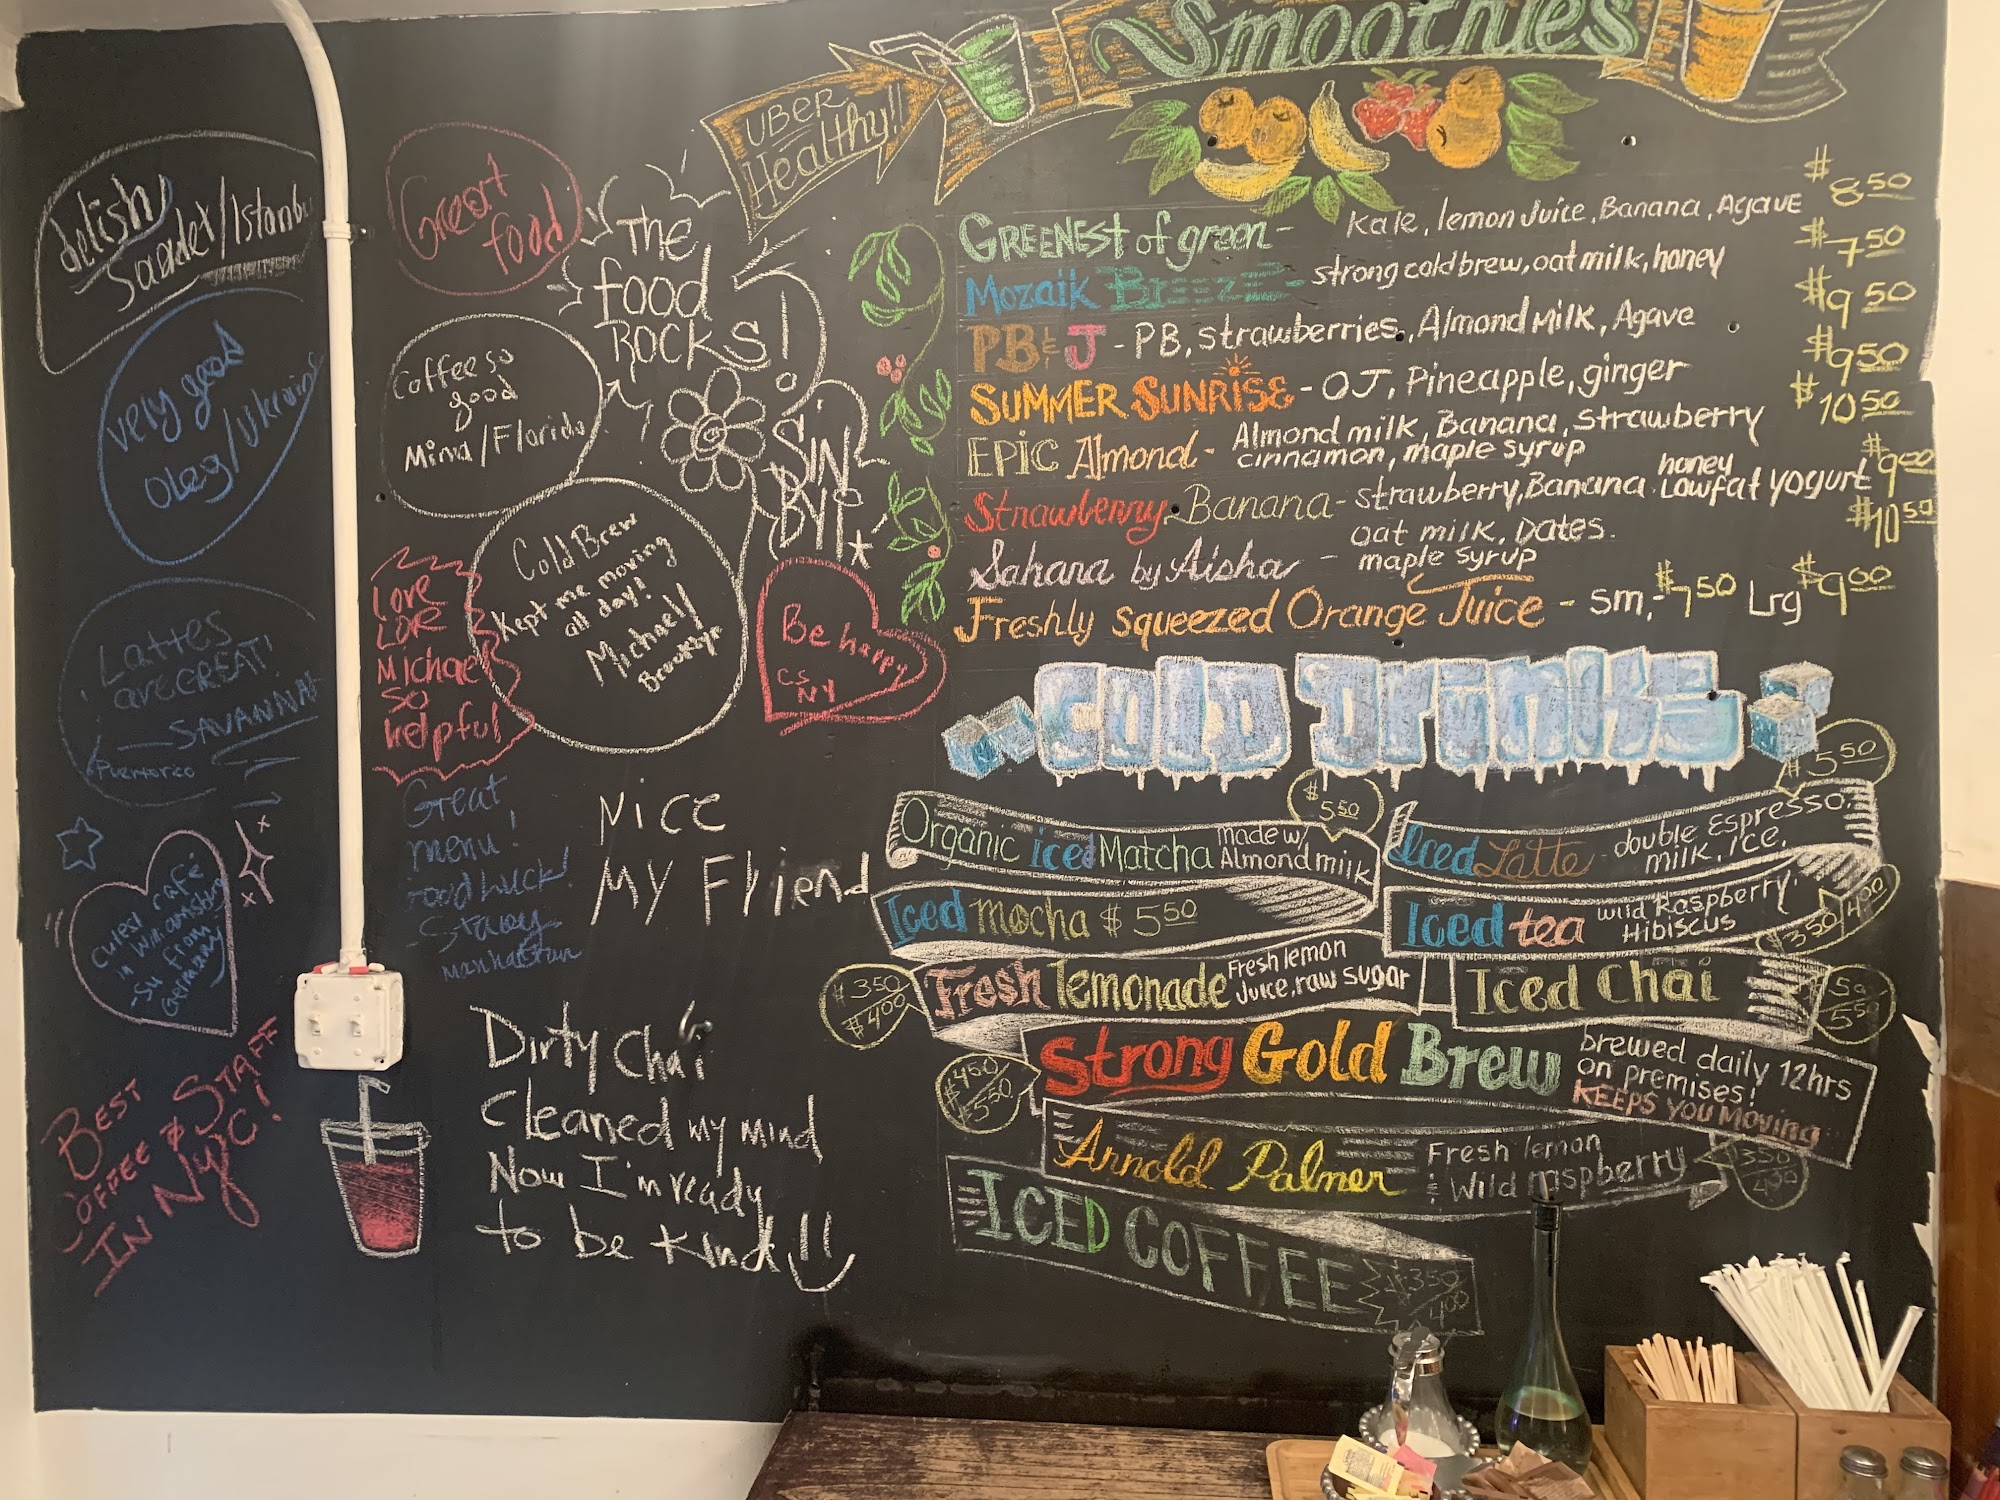 Smoothies
UBER
Healthy!!
GREENEST of green - Kale, lemon Juice, Banana, Agave $8.50
Mozaik BREEZE - strong cold brew, oat milk, honey $7.50
PB & J - PB, strawberries, Almond Milk, Agave $9.50
SUMMER SUNRISE - OJ, Pineapple, ginger $9.50
EPIC Almond - Almond milk, Banana, Strawberry $10.50
cinnamon, maple syrup
Strawberry Banana - strawberry, Banana honey Lowfat yogurt $9.00
Sahara by Aisha - oat milk, Dates. $10.50
maple syrup
Freshly squeezed Orange Juice - sm, - $7.50 Lrg $9.00
Cold Drinks
Organic iced Matcha made w/ Almond milk $5.50
Iced Latte - double Espresso, milk, ice. $5.50
Iced mocha $5.50
Iced tea wild Raspberry, Hibiscus $3.50 4.00
Fresh lemonade Fresh lemon Juice, raw sugar $3.50 $4.00
Iced Chai 5.50
Strong Gold Brew brewed daily 12hrs
on premises!
KEEPS YOU MOVING
$4.50 $5.50
Arnold Palmer Fresh lemon
& Wild raspberry 3.50 4.00
ICED COFFEE $3.50 4.00
delish
Saadet/Istanbul
Great
food
The
food
ROCKS!
very good
Oleg/Ukraine
Coffee so
good
Mina/Florida
Cold Brew
Kept me moving
all day!
Michael/
Brooklyn
Be happy
CS
NY
LOVE
LOVE
Michael
SO
helpful
Lattes
are GREAT!
— SAVANNAH
Puerto rico
Great
menu!
Good Luck!
Stacey
Manhattan
NICE
MY Friend
Cutest café
in Williamsburg
- Su from
Germany
BEST
COFFEE & STAFF
IN NYC!
Dirty Chai
Cleaned my mind
Now I'm ready
to be kind